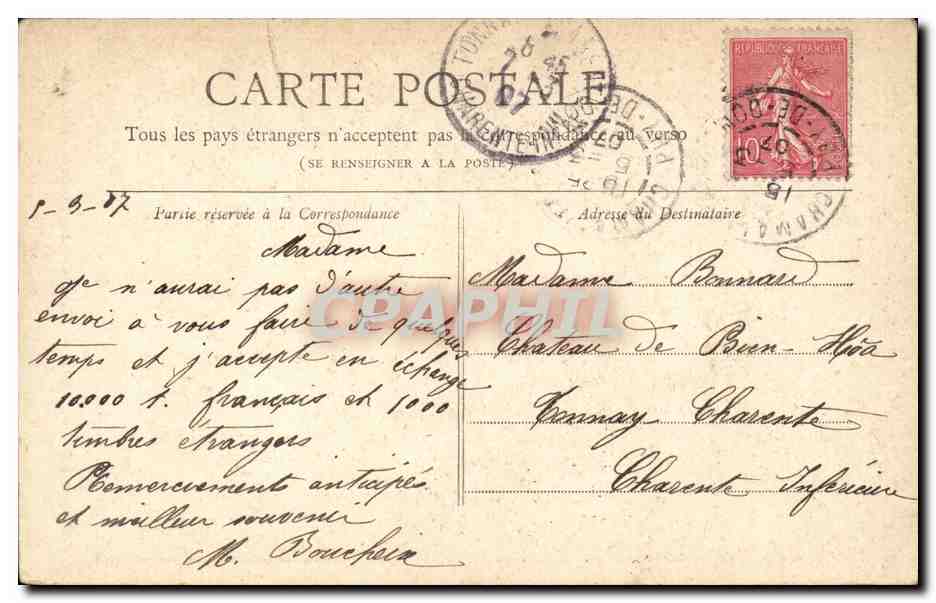 CARTE POSTALE
Tous les pays étrangers n'acceptent pas la correspondance au verso
(SE RENSEIGNER A LA POSTE)
REPUBLIQUE FRANÇAISE
10
TONNAY CHARENTE
CHARENTE-INFRE
26
07
PUY-DE-DOME
PUY-DE-DOME
CHAMAL
Partie réservée à la Correspondance
Adresse du Destinataire
5-3-07
Madame
Je n'aurai pas d'autre
envoi à vous faire de quelques
temps et j'accepte en échange
10.000 t. français et 1000
timbres étrangers
Remerciements anticipés
et meilleur souvenir
M. Boucheix
Madame Bonnard
Chateau de Bien-Hôa
Tonnay Charente
Charente Inférieure
CPAPHIL